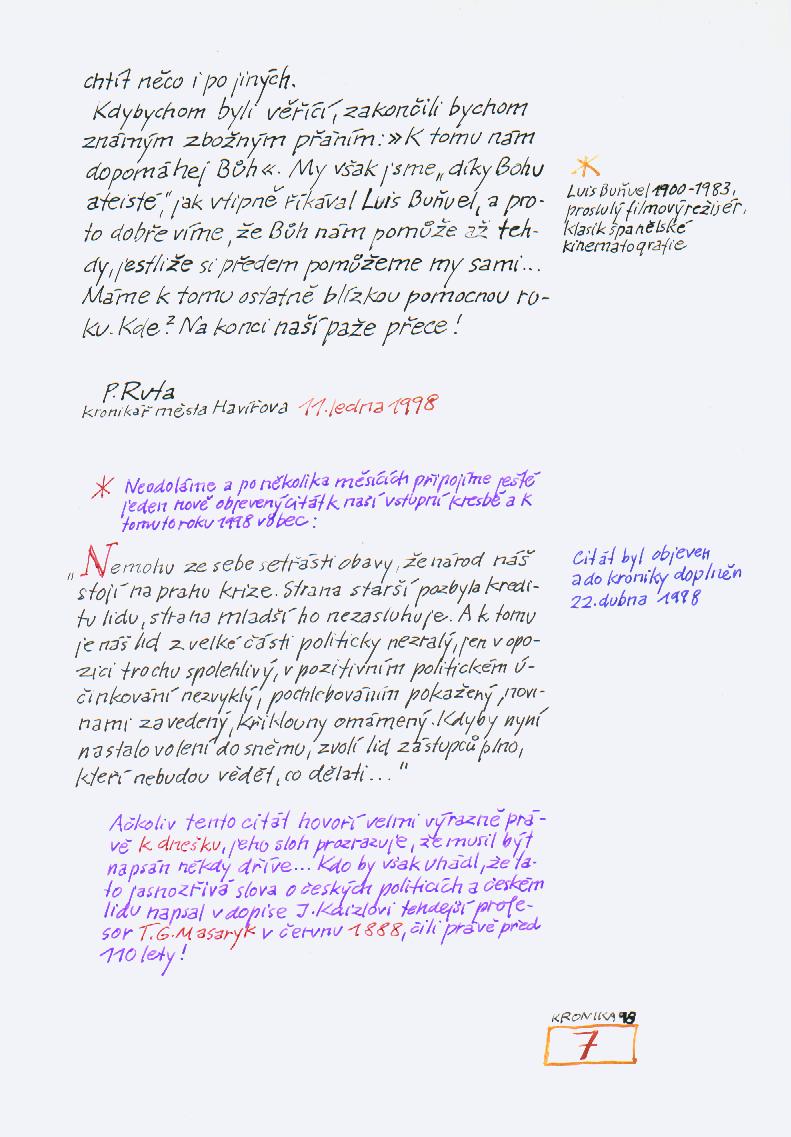 chtít něco i po jiných.
Kdybychom byli věřící, zakončili bychom
známým zbožným přáním: »K tomu nám
dopomáhej Bůh«. My však jsme „díky Bohu
ateisté,“ jak vtipně říkával Luis Buñuel, a pro-
to dobře víme, že Bůh nám pomůže až teh-
dy, jestliže si předem pomůžeme my sami...
Máme k tomu ostatně blízkou pomocnou ru-
ku. Kde? Na konci naší paže přece!
*
Luis Buñuel 1900-1983,
proslulý filmový režisér,
klasik španělské
kinematografie
P. Ruta
kronikář města Havířova 11. ledna 1998
* Neodoláme a po několika měsících připojíme ještě
jeden nově objevený citát k naší vstupní kresbě a k
tomuto roku 1998 vůbec:
„Nemohu ze sebe setřásti obavy, že národ náš
stojí na prahu krize. Strana starší pozbyla kredi-
tu lidu, strana mladší ho nezasluhuje. A k tomu
je náš lid z velké části politicky nezralý, jen v opo-
zici trochu spolehlivý, v pozitivním politickém ú-
činkování nezvyklý, pochlebováním pokažený, novi-
nami zavedený, křiklouny omámený. Kdyby nyní
nastalo volení do sněmu, zvolí lid zástupců plno,
kteří nebudou vědět, co dělati..."
Citát byl objeven
a do kroniky doplněn
22. dubna 1998
Ačkoliv tento citát hovoří velmi výrazně prá-
vě k dnešku, jeho sloh prozrazuje, že musil být
napsán někdy dříve... Kdo by však uhádl, že ta-
to jasnozřivá slova o českých politicích a českém
lidu napsal v dopise J. Kaizlovi tehdejší profe-
sor T.G. Masaryk v červnu 1888, čili právě před
110 lety!
KRONIKA 98
7